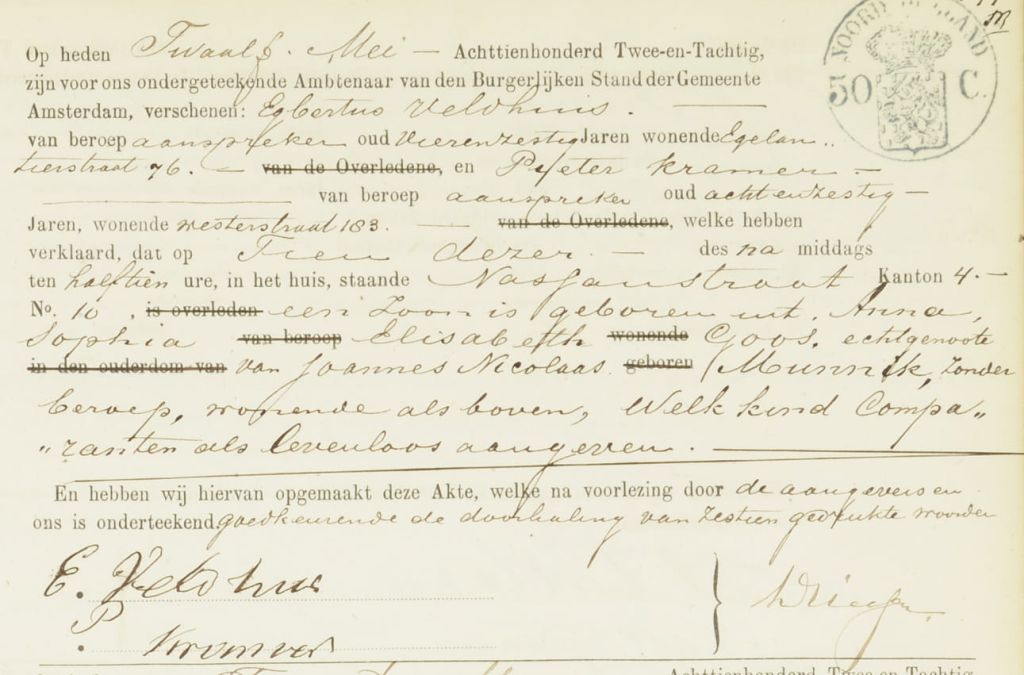 NOORD HOLLAND
50 C.
Op heden Twaalf Mei — Achttienhonderd Twee-en-Tachtig,
zijn voor ons ondergeteekende Ambtenaar van den Burgerlijken Stand der Gemeente
Amsterdam, verschenen: Egbertus Veldhuis. —
van beroep aanspreker oud vierenzestig Jaren wonende Egelan„
tierstraat 76. — van de Overledene, en Pieter Kramer —
— van beroep aanspreker oud achtenzestig —
Jaren, wonende westerstraat 183. — van de Overledene, welke hebben
verklaard, dat op Tien dezer. — des na middags
ten halftien ure, in het huis, staande Nassaustraat Kanton 4. —
No. 10, is overleden een Zoon is geboren uit, Anna,
Sophia van beroep Elisabeth wonende Goos, echtgenoote
in den ouderdom van van Joannes Nicolaas geboren Munnik, zonder
beroep, wonende als boven, Welk kind Compa„
„ranten als levenloos aangeven. —
En hebben wij hiervan opgemaakt deze Akte, welke na voorlezing door de aangevers en
ons is onderteekend, goedkeurende de doorhaling van zestien gedrukte woorden
E. Veldhuis
P. Kramer
Achttienhonderd Twee-en-Tachtig